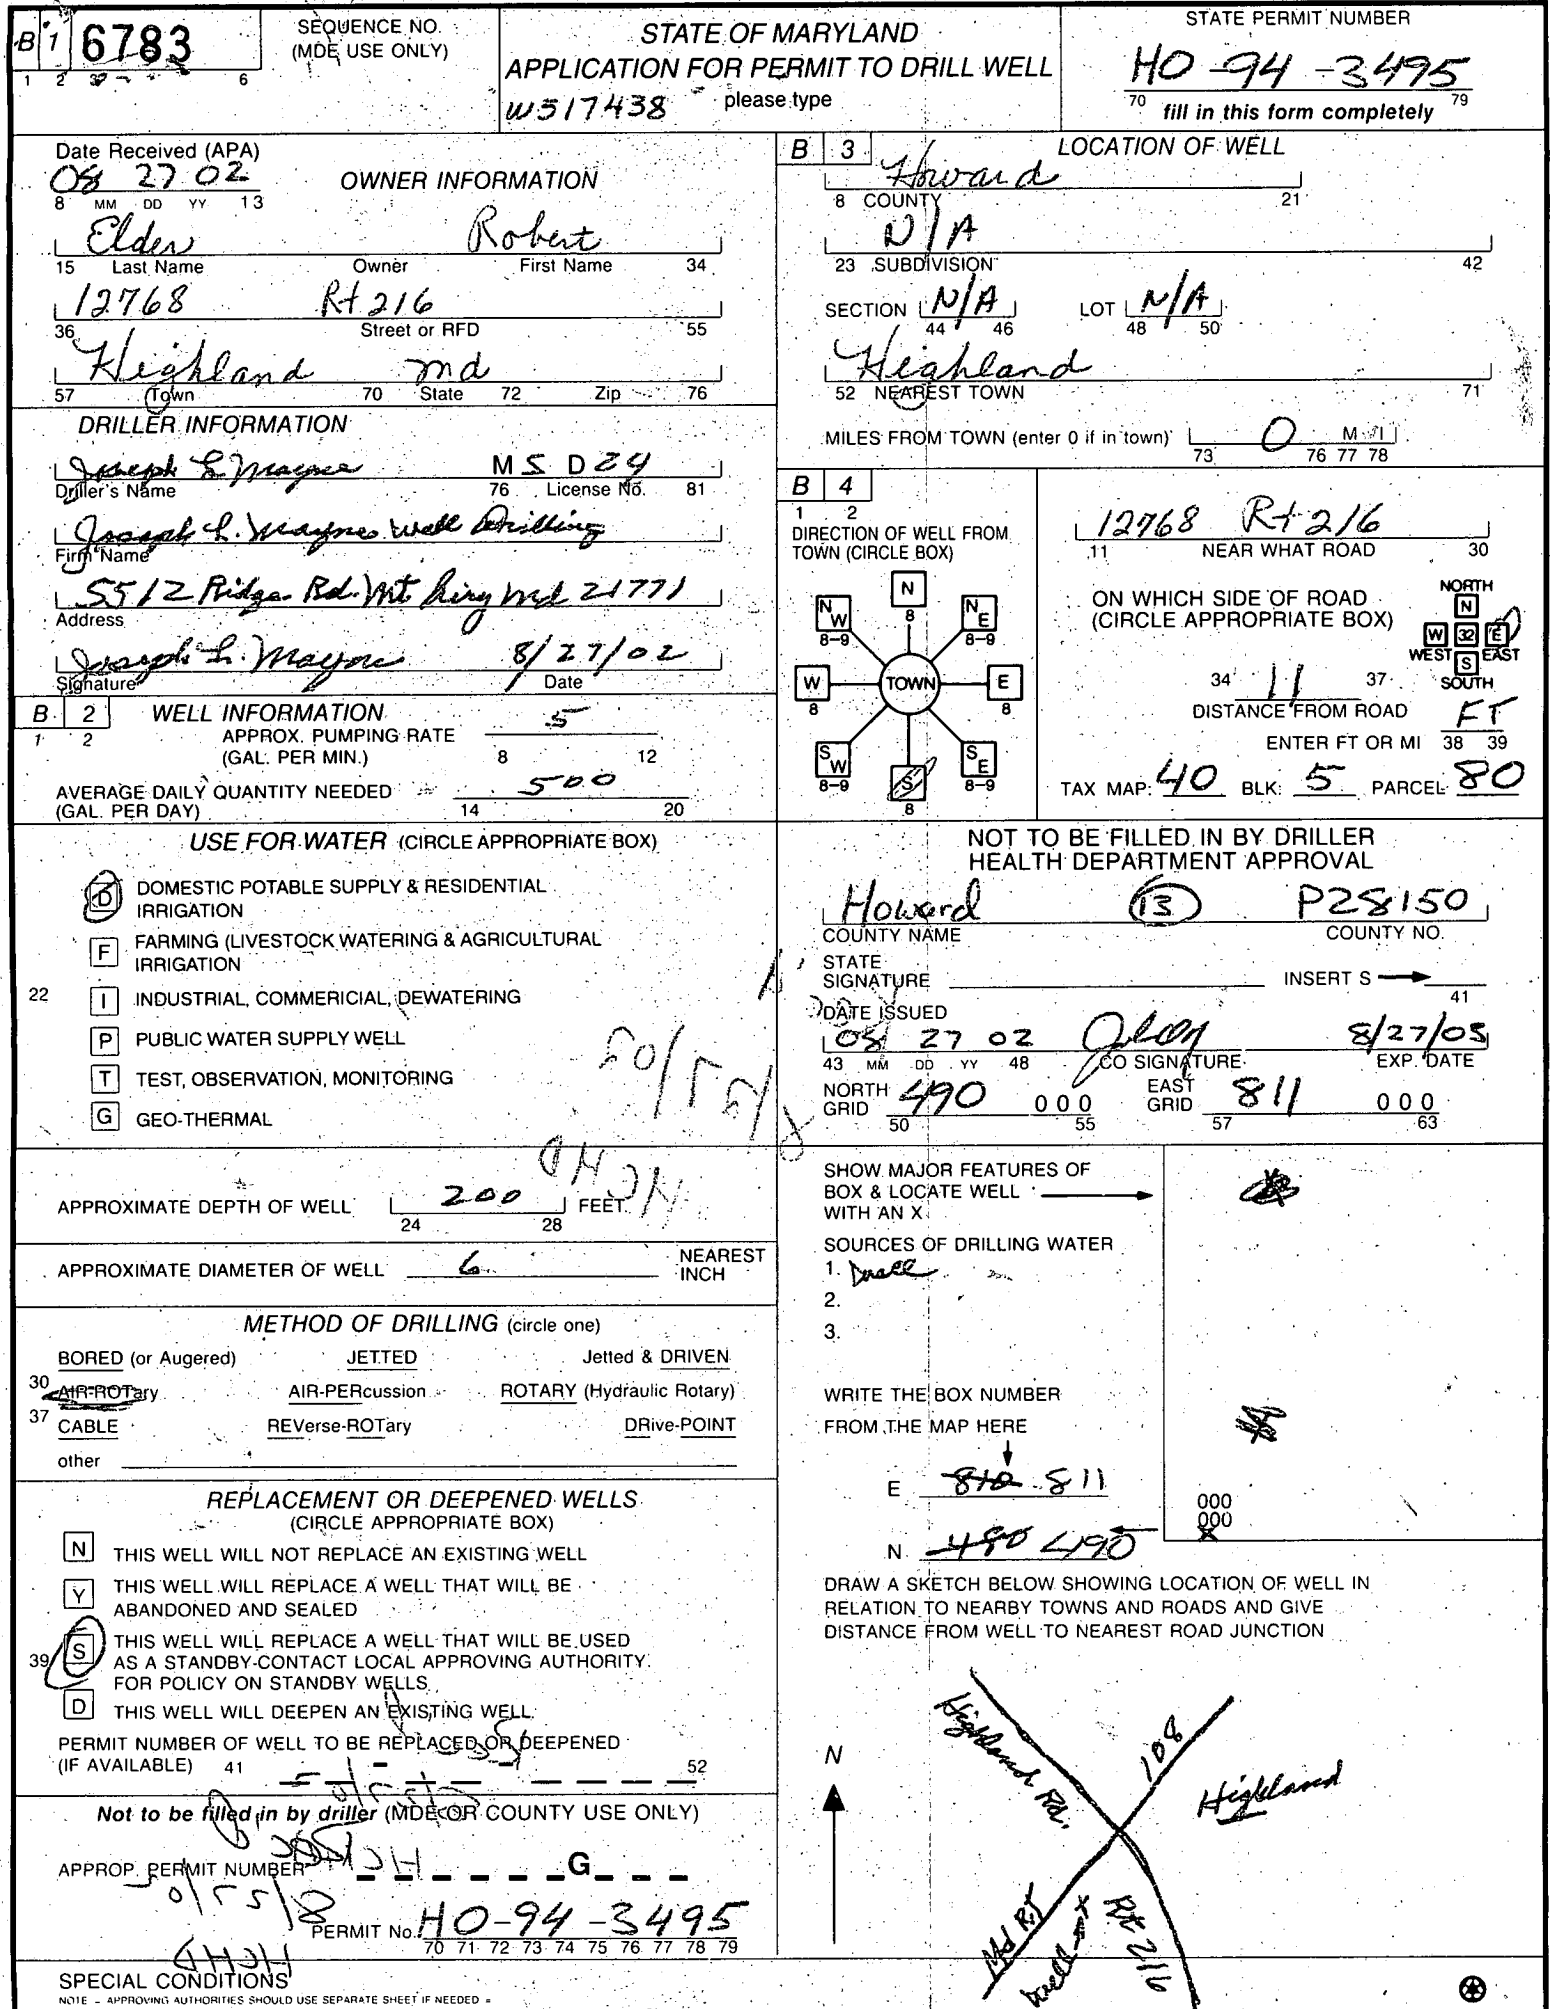 B 1 6783
1 2 3 6
SEQUENCE NO.
(MDE USE ONLY)
STATE OF MARYLAND
APPLICATION FOR PERMIT TO DRILL WELL
W517438 please type
STATE PERMIT NUMBER
HO-94-3495
70 fill in this form completely 79
Date Received (APA)
08 27 02
8 MM DD YY 13
OWNER INFORMATION
Elder Robert
15 Last Name Owner First Name 34
12768 Rt 216
36 Street or RFD 55
Highland Md
57 Town 70 State 72 Zip 76
DRILLER INFORMATION
Joseph L. Mayne MS D24
Driller's Name 76 License No. 81
Joseph L. Maynes Well Drilling
Firm Name
5512 Ridge Rd. Mt Airy Md 21771
Address
Joseph L. Mayne 8/27/02
Signature Date
B 2 WELL INFORMATION
1 2
APPROX. PUMPING RATE 5
(GAL. PER MIN.) 8 12
AVERAGE DAILY QUANTITY NEEDED 500
(GAL. PER DAY) 14 20
USE FOR WATER (CIRCLE APPROPRIATE BOX)
D DOMESTIC POTABLE SUPPLY & RESIDENTIAL
IRRIGATION
F FARMING (LIVESTOCK WATERING & AGRICULTURAL
IRRIGATION
22 I INDUSTRIAL, COMMERICIAL, DEWATERING
P PUBLIC WATER SUPPLY WELL
T TEST, OBSERVATION, MONITORING
G GEO-THERMAL
APPROXIMATE DEPTH OF WELL 200 FEET
24 28
APPROXIMATE DIAMETER OF WELL 6 NEAREST
INCH
METHOD OF DRILLING (circle one)
BORED (or Augered) JETTED Jetted & DRIVEN
30 AIR-ROTary AIR-PERcussion ROTARY (Hydraulic Rotary)
37 CABLE REVerse-ROTary DRive-POINT
other
REPLACEMENT OR DEEPENED WELLS
(CIRCLE APPROPRIATE BOX)
N THIS WELL WILL NOT REPLACE AN EXISTING WELL
Y THIS WELL WILL REPLACE A WELL THAT WILL BE
ABANDONED AND SEALED
39 S THIS WELL WILL REPLACE A WELL THAT WILL BE USED
AS A STANDBY-CONTACT LOCAL APPROVING AUTHORITY
FOR POLICY ON STANDBY WELLS
D THIS WELL WILL DEEPEN AN EXISTING WELL
PERMIT NUMBER OF WELL TO BE REPLACED OR DEEPENED
(IF AVAILABLE) 41 52
Not to be filled in by driller (MDE OR COUNTY USE ONLY)
APPROP. PERMIT NUMBER G
PERMIT No. HO-94-3495
70 71 72 73 74 75 76 77 78 79
HCHD
SPECIAL CONDITIONS
NOTE - APPROVING AUTHORITIES SHOULD USE SEPARATE SHEET IF NEEDED
B 3 LOCATION OF WELL
Howard
8 COUNTY 21
N/A
23 SUBDIVISION 42
SECTION N/A LOT N/A
44 46 48 50
Highland
52 NEAREST TOWN 71
MILES FROM TOWN (enter 0 if in town) 0 M I
73 76 77 78
B 4
1 2
DIRECTION OF WELL FROM
TOWN (CIRCLE BOX)
N
8
NW NE
8-9 8-9
W TOWN E
8 8
SW S SE
8-9 8 8-9
12768 Rt 216
11 NEAR WHAT ROAD 30
ON WHICH SIDE OF ROAD
(CIRCLE APPROPRIATE BOX)
NORTH
N
W 32 E
WEST EAST
S
SOUTH
34 11 37
DISTANCE FROM ROAD FT
ENTER FT OR MI 38 39
TAX MAP: 40 BLK: 5 PARCEL 80
NOT TO BE FILLED IN BY DRILLER
HEALTH DEPARTMENT APPROVAL
Howard 13 P28150
COUNTY NAME COUNTY NO.
STATE
SIGNATURE INSERT S
41
DATE ISSUED
08 27 02 8/27/03
43 MM DD YY 48 CO SIGNATURE EXP. DATE
NORTH
GRID 490 000 EAST
GRID 811 000
50 55 57 63
SHOW MAJOR FEATURES OF
BOX & LOCATE WELL
WITH AN X
SOURCES OF DRILLING WATER
1.
2.
3.
WRITE THE BOX NUMBER
FROM THE MAP HERE
E 810 811
N 480 490
000
000
X
DRAW A SKETCH BELOW SHOWING LOCATION OF WELL IN
RELATION TO NEARBY TOWNS AND ROADS AND GIVE
DISTANCE FROM WELL TO NEAREST ROAD JUNCTION
N
Highland Rd.
108
Highland
Md RT
Well X
Rt 216